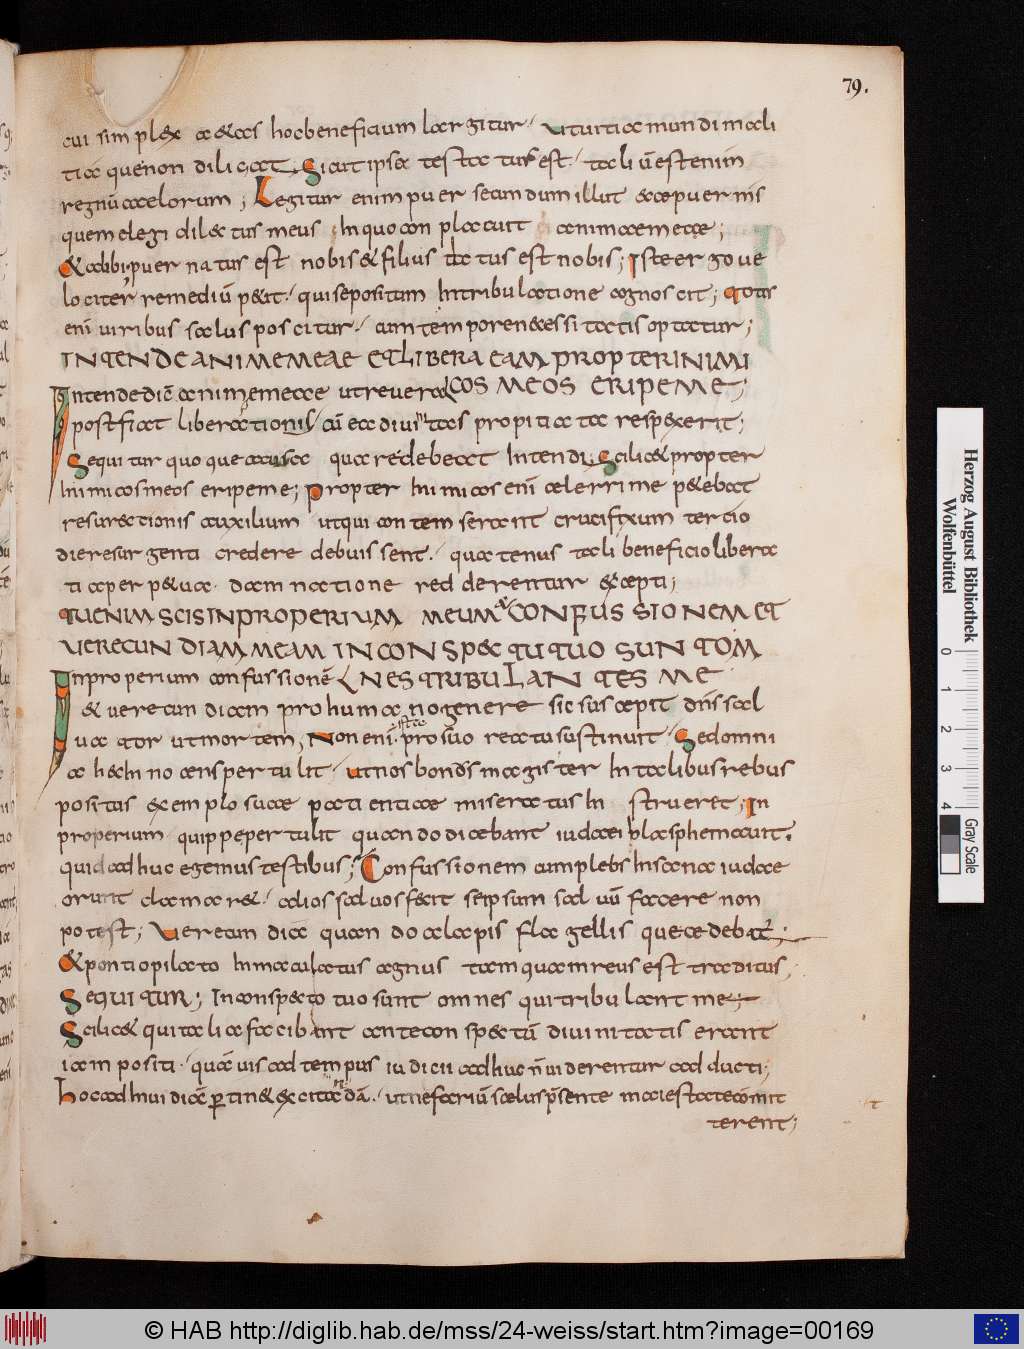 79.
cui simplex aetas hoc beneficium largitur; Ut uitia mundi mali
tia que non diligat; Sicut ipsa testatur est; talium est enim
regnū caelorum; Legitur enim puer secundum illut ecce puer m̄s
quem elegi dilectus meus In quo conplacuit animae meae;
& alibi puer natus est nobis & filius datus est nobis; Iste ergo ue
lociter remediū petit; qui se positum In tribulatione cognoscit; Totis
eni uiribus salus poscitur; cum tempore necessitatis optatur;
INTENDE ANIME MEAE ET LIBERA EAM PROPTER INIMI
Intende dic̄ animae meae ut reuera COS MEOS ERIPE ME;
post fiat liberationis cū eā diuinitas propitiata respexerit;
Sequitur quoque causa quare debeat Intendi; Scilicet propter
Inimicos meos eripe me; propter Inimicos eni celerrime petebat
resurectionis auxilium ut qui contemserant crucifixum tercio
die resurgenti credere debuissent; quatenus tali beneficio libera
ti a perpetua damnatione redderentur excepti;
TU ENIM SCIS INPROPERIUM MEUM CONFUSSIONEM ET
UERECUNDIAM MEAM IN CONSPECTU TUO SUNT OM
Inproperium confussionē NES TRIBULANTES ME
& uerecundiam pro humano genere sic suscepit dn̄s sal
uator ut mortem; Non eni ista pro suo reatu sustinuit; Sed omni
a haec Innocens pertulit; ut nos bonus magister In talibus rebus
positus exemplo suae patientiae miseratus Instrueret; In
properium quippe pertulit quando dicebant iudaei blasphemauit;
quid adhuc egemus testibus; Confussionem cum plebs Insana iudae
orum clamaret; alios saluos fecit se ipsum saluū facere non
potest; Uerecundiā quando alapis flagellisque caedebat;
& pontio pilato Inmaculatus agnus tamquam reus est traditus;
SEQUITUR; In conspecto tuo sunt omnes qui tribulant me;
Scilicet qui talia faciebant ante conspectū diuinitatis erant
iam positi; quāuis ad tempus iudicii adhuc n̄ uiderentur adducti;
Hoc ad Inuidiā pertinet excitandā; ut nefariū scelus p̄sente maiestate committerent;
Herzog August Bibliothek
Wolfenbüttel
0 1 2 3 4
Gray Scale
© HAB http://diglib.hab.de/mss/24-weiss/start.htm?image=00169